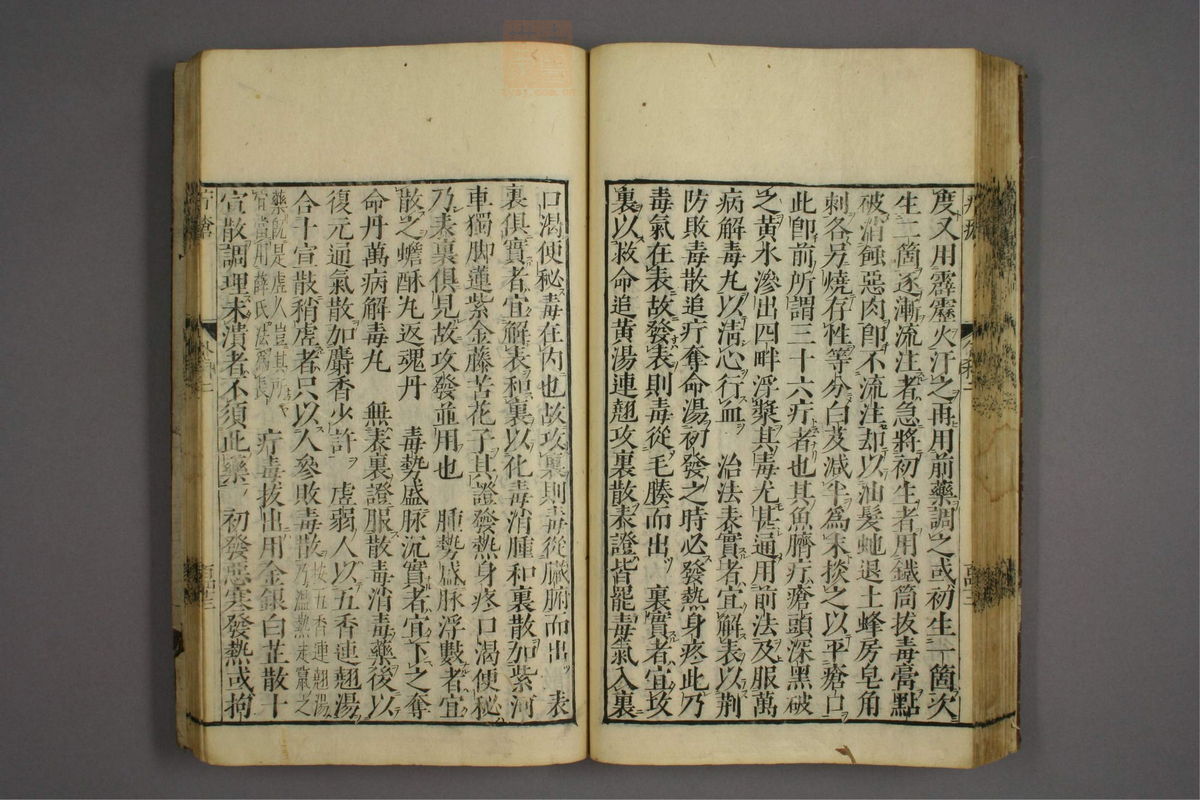 度又用霹靂火汗之再用前藥調之或初生一箇次
生二箇逐漸流注者急將初生者用鐵筒拔毒膏點
破消蝕惡肉卽不流注却以油髮虵退土蜂房皂角
刺各另燒存性等分白芨減半爲末掞之以平瘡口
此卽前所謂三十六疔者也其魚臍疔瘡頭深黑破
之黄水滲出四畔浮漿其毒尤甚通用前法及服萬
病解毒丸以清心行血 治法表實者宜解表以荆
防敗毒散追疔奪命湯初發之時必發熱身疼此乃
毒氣在表故發表則毒從毛腠而出 裏實者宜攻
裏以救命追黄湯連翹攻裏散表證皆罷毒氣入裏
口渴便秘毒在内也故攻裏則毒從臟腑而出 表
裏俱實者宜解表和裏以化毒消腫和裏散加紫河
車獨脚蓮紫金藤苦花子其證發熱身疼口渴便秘
乃表裏俱見故攻發並用也 腫勢盛脉浮數者宜
散之蟾酥丸返魂丹 毒勢盛脉沉實者宜下之奪
命丹萬病解毒丸 無表裏證服散毒消毒藥後以
復元通氣散加麝香少許 虚弱人以五香連翹湯
合十宣散稍虚者只以人參敗毒散按五香連翹湯
乃溫熱走竄之
藥旣是虚人豈其所
宜當用薛氏法爲長 疔毒拔出用金銀白芷散十
宣散調理未潰者不須此藥 初發惡寒發熱或拘